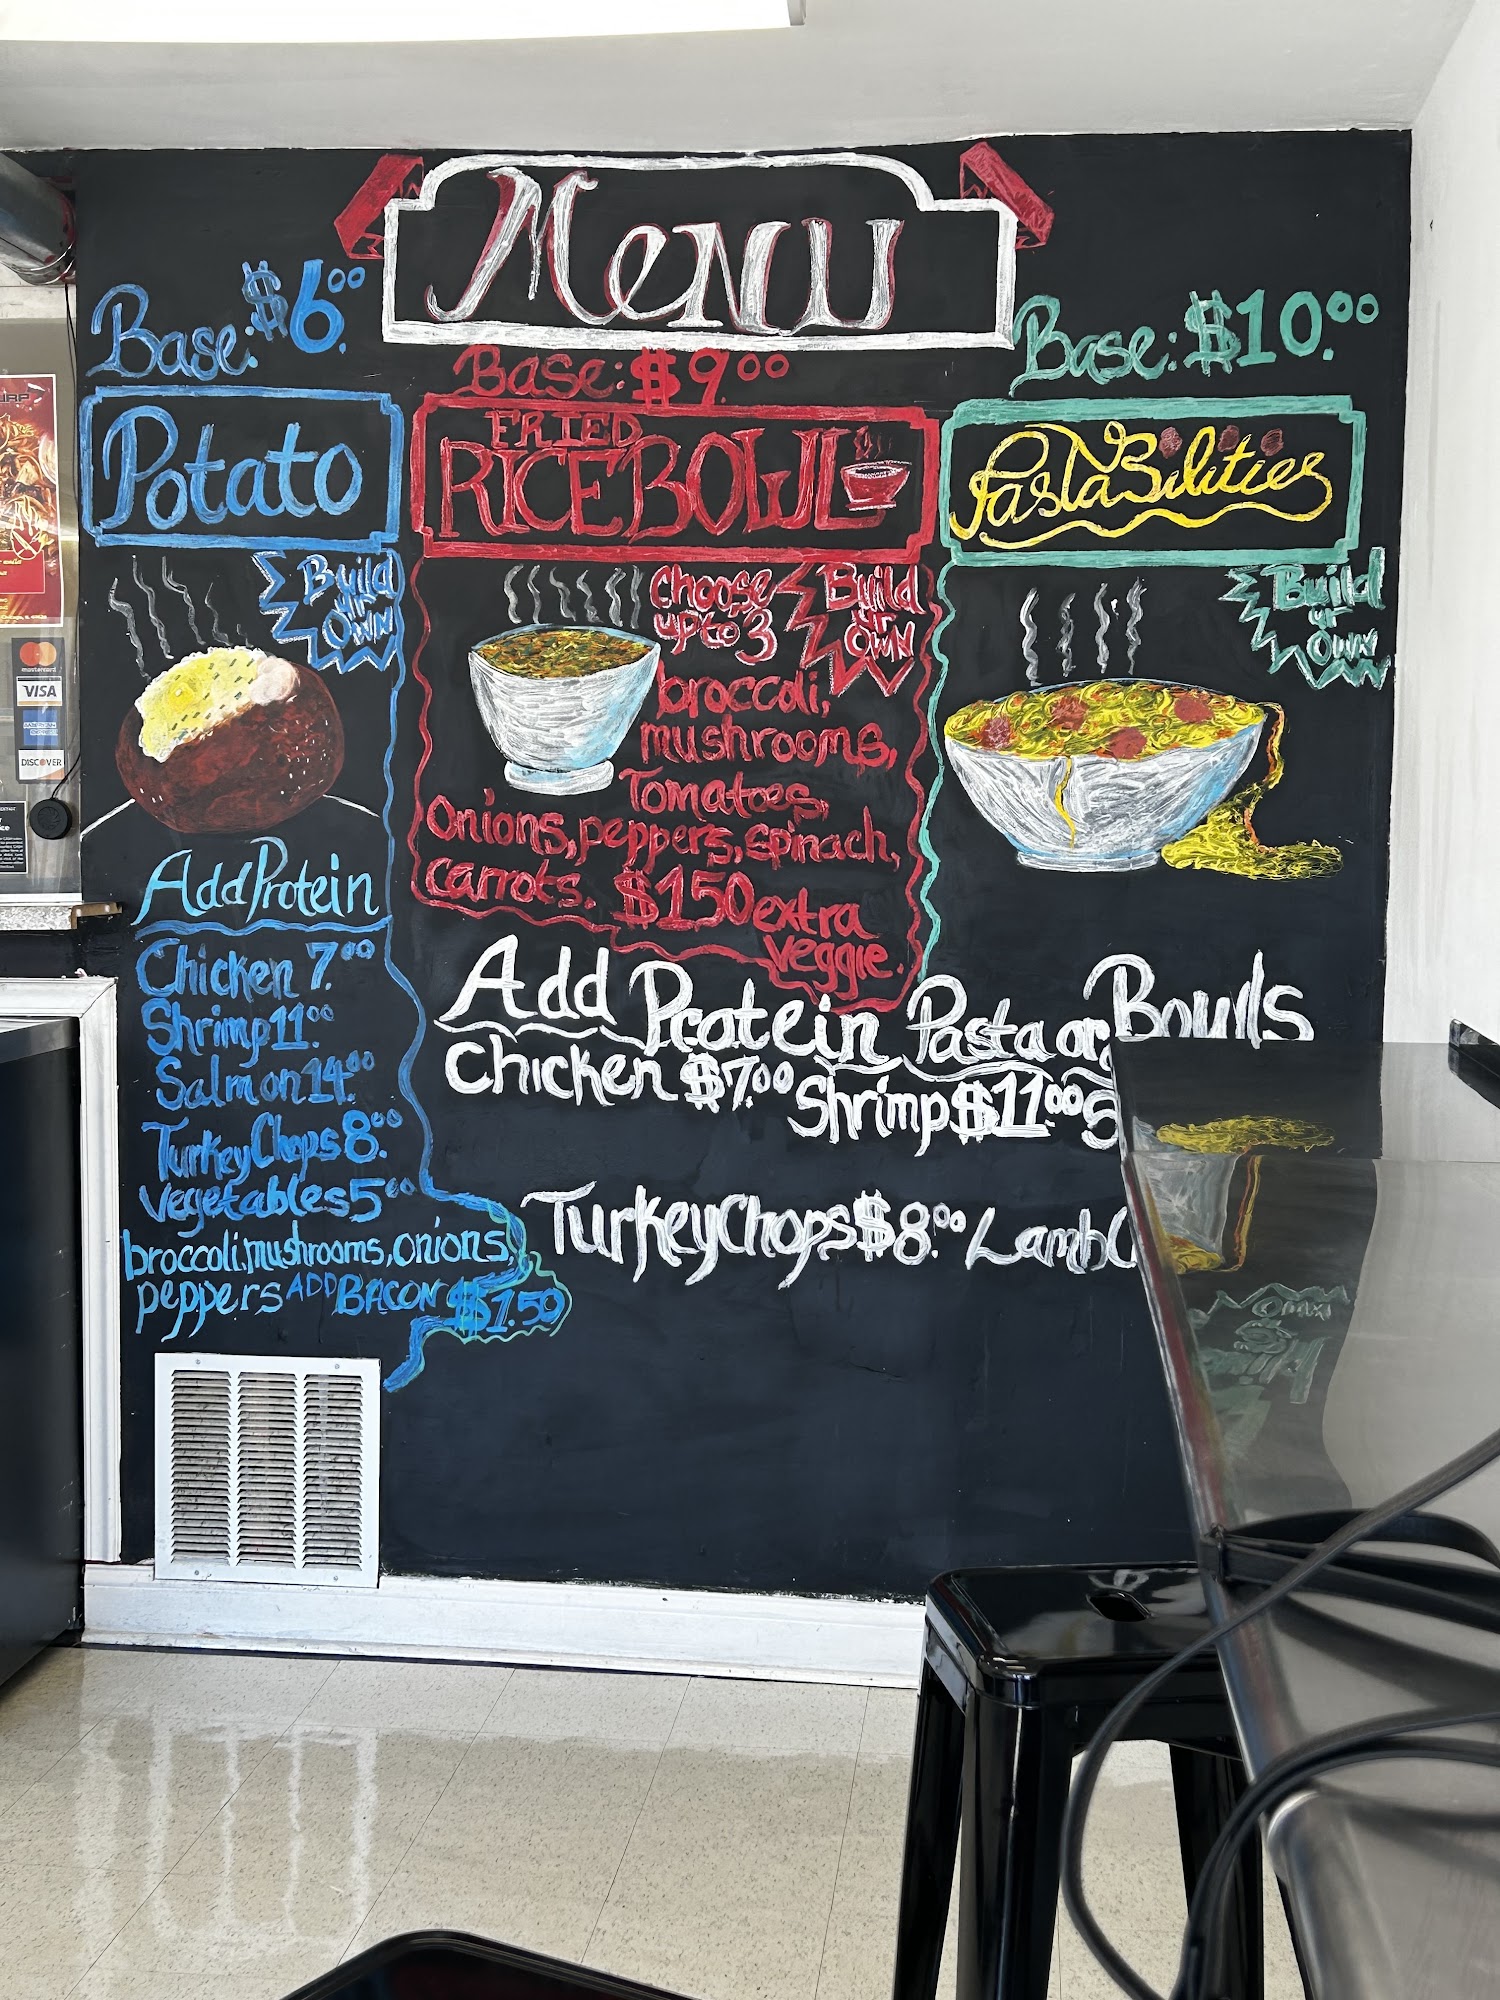 Menu
Base: $6.00
Potato
Build
yr
Own
Add Protein
Chicken 7.00
Shrimp 11.00
Salmon 14.00
Turkey Chops 8.00
Vegetables 5.00
broccoli, mushrooms, onions,
peppers ADD BACON $1.50
Base: $9.00
FRIED
RICE BOWL
Choose
up to 3
Build
yr
Own
broccoli,
mushrooms,
Tomatoes,
Onions, peppers, spinach,
carrots. $150 extra
veggie.
Base: $10.00
PastaBilities
Build
yr
Own
Add Protein Pasta or Bowls
Chicken $7.00 Shrimp $11.00 S
Turkey Chops $8.00 Lamb C
mastercard
VISA
AMERICAN
EXPRESS
DISCOVER